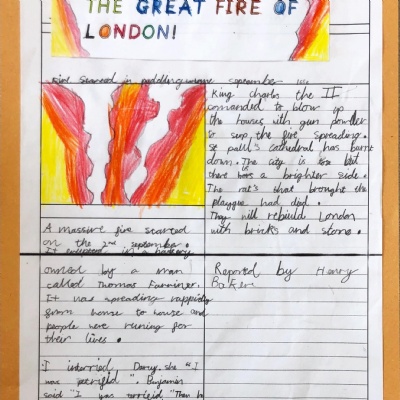 THE GREAT FIRE OF
LONDON!
Fire started in pudding september
King charles the II
comanded to blow up
the houses with gun powder
to stop the fire spreading.
st paul's cathedral has burnt
down. The city is but
there is a brighter side.
The rat's that brought the
playgue had died.
They will rebuild London
with bricks and stone.
A massive fire started
on the 2nd september.
It in a bakery
owned by a man
called Thomas Farriner.
It was spreading rappidly
from house to house and
people were runing for
their lives.
Reported by Henry
Baker
I Darcy. she "I
was petrified". Benjamin
said "I was "Then by